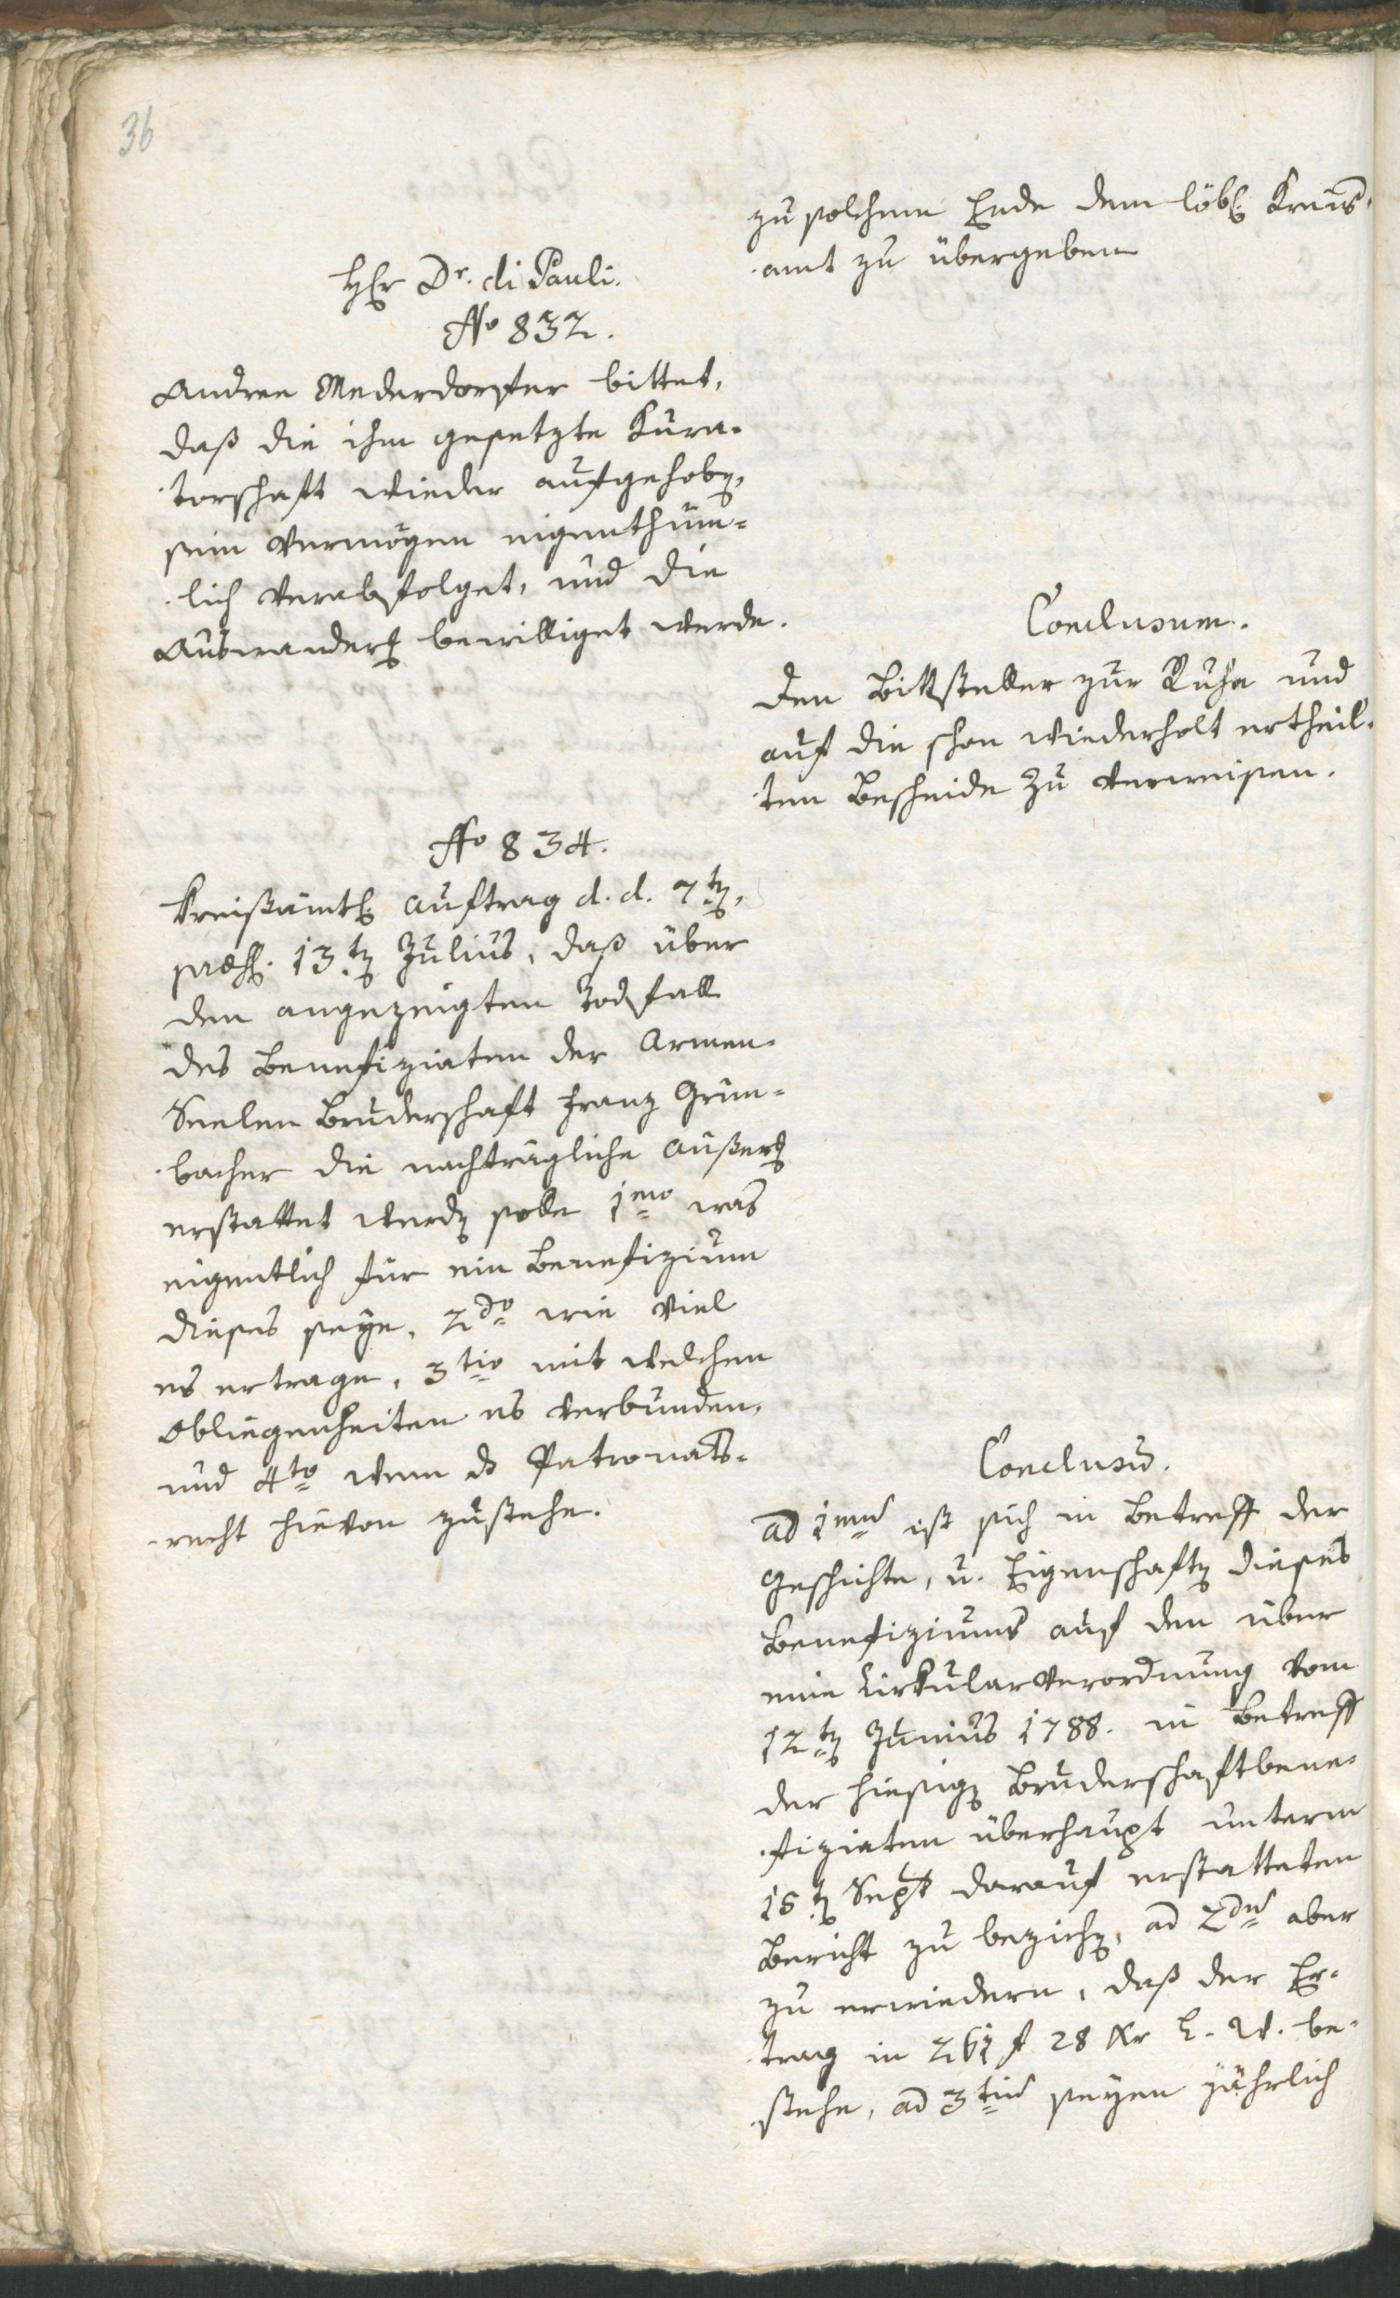 36
zu solchem Ende dem löbl. Kreis-
amt zu übergeben
H Er Dr. di Pauli.
No 832.
Andree Mederdorfer bittet,
daß die ihm gesetzte Kura-
torschaft wieder aufgehoben,
sein Vermögen eigenthüm-
lich verabfolget, und die
Auswanderung bewilliget werde.
Conclusum.
Den Bittsteller zur Ruhe und
auf die schon wiederholt ertheil-
ten Bescheide zu verweisen.
No 834.
Kreisämtl. Auftrag d. d. 7ten,
praes. 13ten Julius, daß über
den angezeigten Todfall
des Benefiziaten der Armen-
Seelen Bruderschaft Franz Grün-
bacher die nachträgliche Äußerung
erstattet werden solle 1mo was
eigentlich für ein Benefizium
dieses seye, 2do wie viel
es ertrage, 3tio mit welchen
Obliegenheiten es verbunden,
und 4to wem das Patronats-
recht hievon zustehe.
Conclusum.
ad 1mum ist sich in Betreff der
Geschichte, u. Eigenschaften dieses
Benefiziums auf den über
eine Cirkularverordnung vom
12ten Junius 1788. in Betreff
der hiesigen Bruderschaftbene-
fiziaten überhaupt unterm
15ten Sept darauf erstatteten
Bericht zu beziehen, ad 2dum aber
zu erwiedern, daß der Er-
trag in 261 f 28 Xr L. W. be-
stehe, ad 3tium seyen jährlich